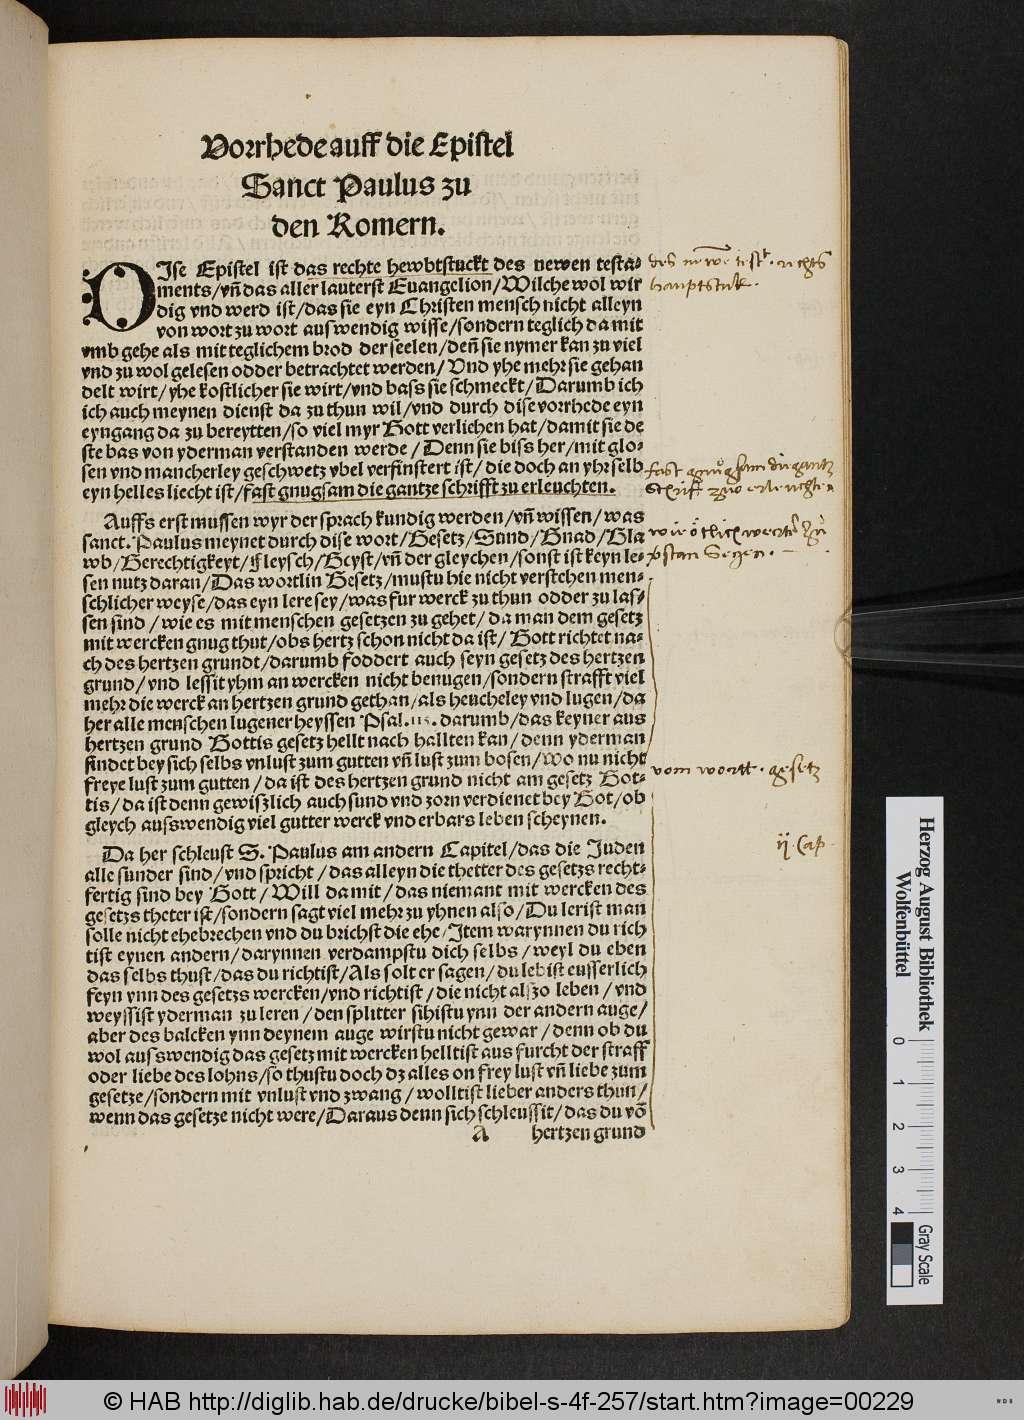 Vorrhede auff die Epistel
Sanct Paulus zu
den Romern.
DIse Epistel ist das rechte hewbtstuckt des newen testa-
ments/vn̄ das aller lauterst Euangelion/Wilche wol wir
dig vnd werd ist/das sie eyn Christen mensch nicht alleyn
von wort zu wort auswendig wisse/sondern teglich da mit
vmb gehe als mit teglichem brod der seelen/den̄ sie nymer kan zu viel
vnd zu wol gelesen odder betrachtet werden/Vnd yhe mehr sie gehan
delt wirt/yhe kostlicher sie wirt/vnd bass sie schmeckt/Darumb ich
ich auch meynen dienst da zu thun wil/vnd durch dise vorrhede eyn
eyngang da zu bereytten/so viel myr Gott verliehen hat/damit sie de
ste bas von yderman verstanden werde/Denn sie biss her/mit glo-
sen vnd mancherley geschwetz vbel verfinstert ist/die doch an yhr selb
eyn helles liecht ist/fast gnugsam die gantze schrifft zu erleuchten.
Auffs erst mussen wyr der sprach kundig werden/vn̄ wissen/was
sanct. Paulus meynet durch dise wort/Gesetz/Sund/Gnad/Gla
wb/Gerechtigkeyt/Fleysch/Geyst/vn̄ der gleychen/sonst ist keyn le-
sen nutz daran/Das wortlin Gesetz/mustu hie nicht verstehen men-
schlicher weyse/das eyn lere sey/was fur werck zu thun odder zu las-
sen sind/wie es mit menschen gesetzen zu gehet/da man dem gesetz
mit wercken gnug thut/obs hertz schon nicht da ist/Gott richtet na-
ch des hertzen grundt/darumb foddert auch seyn gesetz des hertzen
grund/vnd lessit yhm an wercken nicht benugen/sondern strafft viel
mehr die werck an hertzen grund gethan/als heucheley vnd lugen/da
her alle menschen lugener heyssen Psal. darumb/das keyner aus
hertzen grund Gottis gesetz hellt nach hallten kan/denn yderman
findet bey sich selbs vnlust zum gutten vn̄ lust zum bosen/Wo nu nicht
freye lust zum gutten/da ist des hertzen grund nicht am gesetz Got-
tis/da ist denn gewißlich auch sund vnd zorn verdienet bey Got/ob
gleych auswendig viel gutter werck vnd erbars leben scheynen.
Da her schleust S. Paulus am andern Capitel/das die Juden
alle sunder sind/vnd spricht/das alleyn die thetter des gesetzs recht-
fertig sind bey Gott/Will damit/das niemant mit wercken des
gesetzs theter ist/sondern sagt viel mehr zu yhnen also/Du lerist man
solle nicht ehebrechen vnd du brichst die ehe/Item warynnen du rich
tist eynen andern/darynnen verdampstu dich selbs/weyl du eben
das selbs thust/das du richtist/Als solt er sagen/du lebist eusserlich
feyn ynn des gesetzs wercken/vnd richtist/die nicht alßo leben/vnd
weyssist yderman zu leren/den splitter sihistu ynn der andern auge/
aber des balcken ynn deynem auge wirstu nicht gewar/denn ob du
wol auswendig das gesetz mit wercken helltist aus furcht der straff
oder liebe des lohns/so thustu doch dz alles on frey lust vn̄ liebe zum
gesetze/sondern mit vnlust vnd zwang/wolltist lieber anders thun/
wenn das gesetze nicht were/Daraus denn sich schleussit/das du vō
A hertzen grund
des newe rechts
hauptstuk.
fast die gantz
vom wortt. gesetz
ij. Cap.
Herzog August Bibliothek
Wolfenbüttel
0 1 2 3 4
Gray Scale
© HAB http://diglib.hab.de/drucke/bibel-s-4f-257/start.htm?image=00229